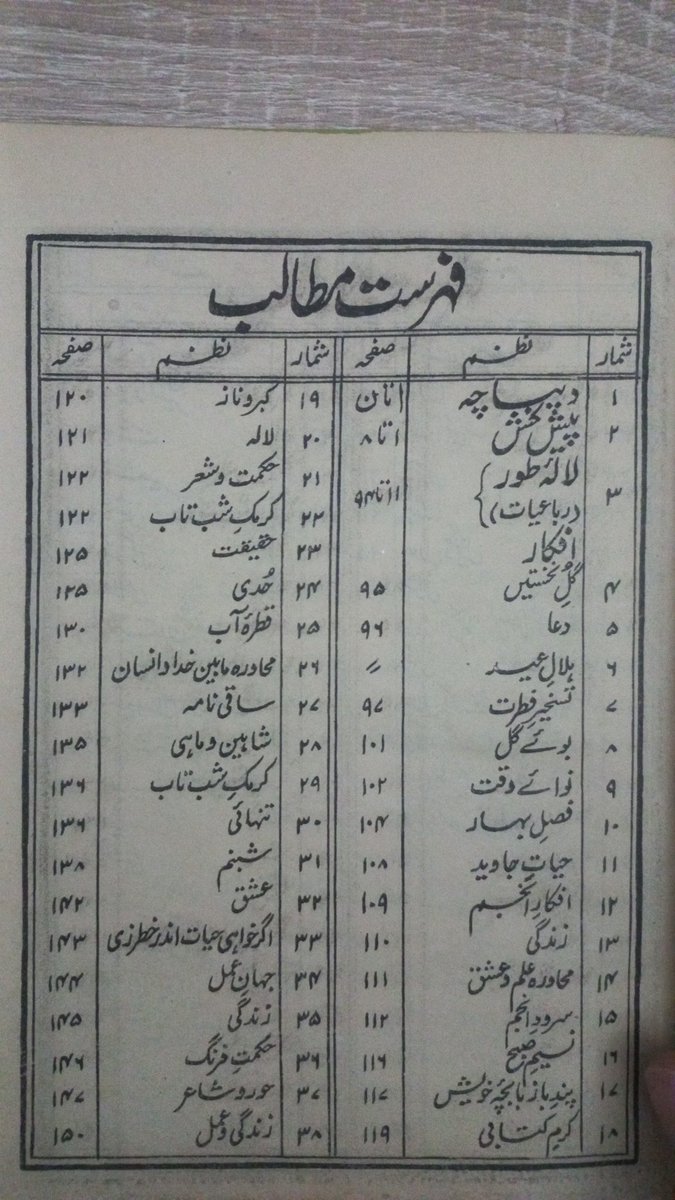 فہرست مطالب
شمار نظم صفحہ شمار نظم صفحہ
۱ دیباچہ ا تا ن
۲ پیش کش ۱ تا ۸
۳ لالۂ طور (رباعیات) ۱۱ تا ۹۴
افکار
۴ گلِ نخستیں ۹۵
۵ دعا ۹۶
۶ ہلالِ عید 〃
۷ تسخیرِ فطرت ۹۷
۸ بوئے گل ۱۰۱
۹ نوائے وقت ۱۰۲
۱۰ فصلِ بہار ۱۰۴
۱۱ حیاتِ جاوید ۱۰۸
۱۲ افکارِ انجم ۱۰۹
۱۳ زندگی ۱۱۰
۱۴ محاورہ علم و عشق ۱۱۱
۱۵ سرودِ انجم ۱۱۲
۱۶ نسیمِ صبح ۱۱۶
۱۷ پندِ باز با بچۂ خویش ۱۱۷
۱۸ کرمِ کتابی ۱۱۹
۱۹ کبر و ناز ۱۲۰
۲۰ لالہ ۱۲۱
۲۱ حکمت و شعر ۱۲۲
۲۲ کرمکِ شب تاب ۱۲۲
۲۳ حقیقت ۱۲۵
۲۴ حُدی ۱۲۵
۲۵ قطرۂ آب ۱۳۰
۲۶ محاورہ مابین خدا و انسان ۱۳۲
۲۷ ساقی نامہ ۱۳۳
۲۸ شاہین و ماہی ۱۳۵
۲۹ کرمکِ شب تاب ۱۳۶
۳۰ تنہائی ۱۳۶
۳۱ شبنم ۱۳۸
۳۲ عشق ۱۴۲
۳۳ اگر خواہی حیات اندر خطر زی ۱۴۳
۳۴ جہانِ عمل ۱۴۴
۳۵ زندگی ۱۴۵
۳۶ حکمتِ فرنگ ۱۴۶
۳۷ حور و شاعر ۱۴۷
۳۸ زندگی و عمل ۱۵۰